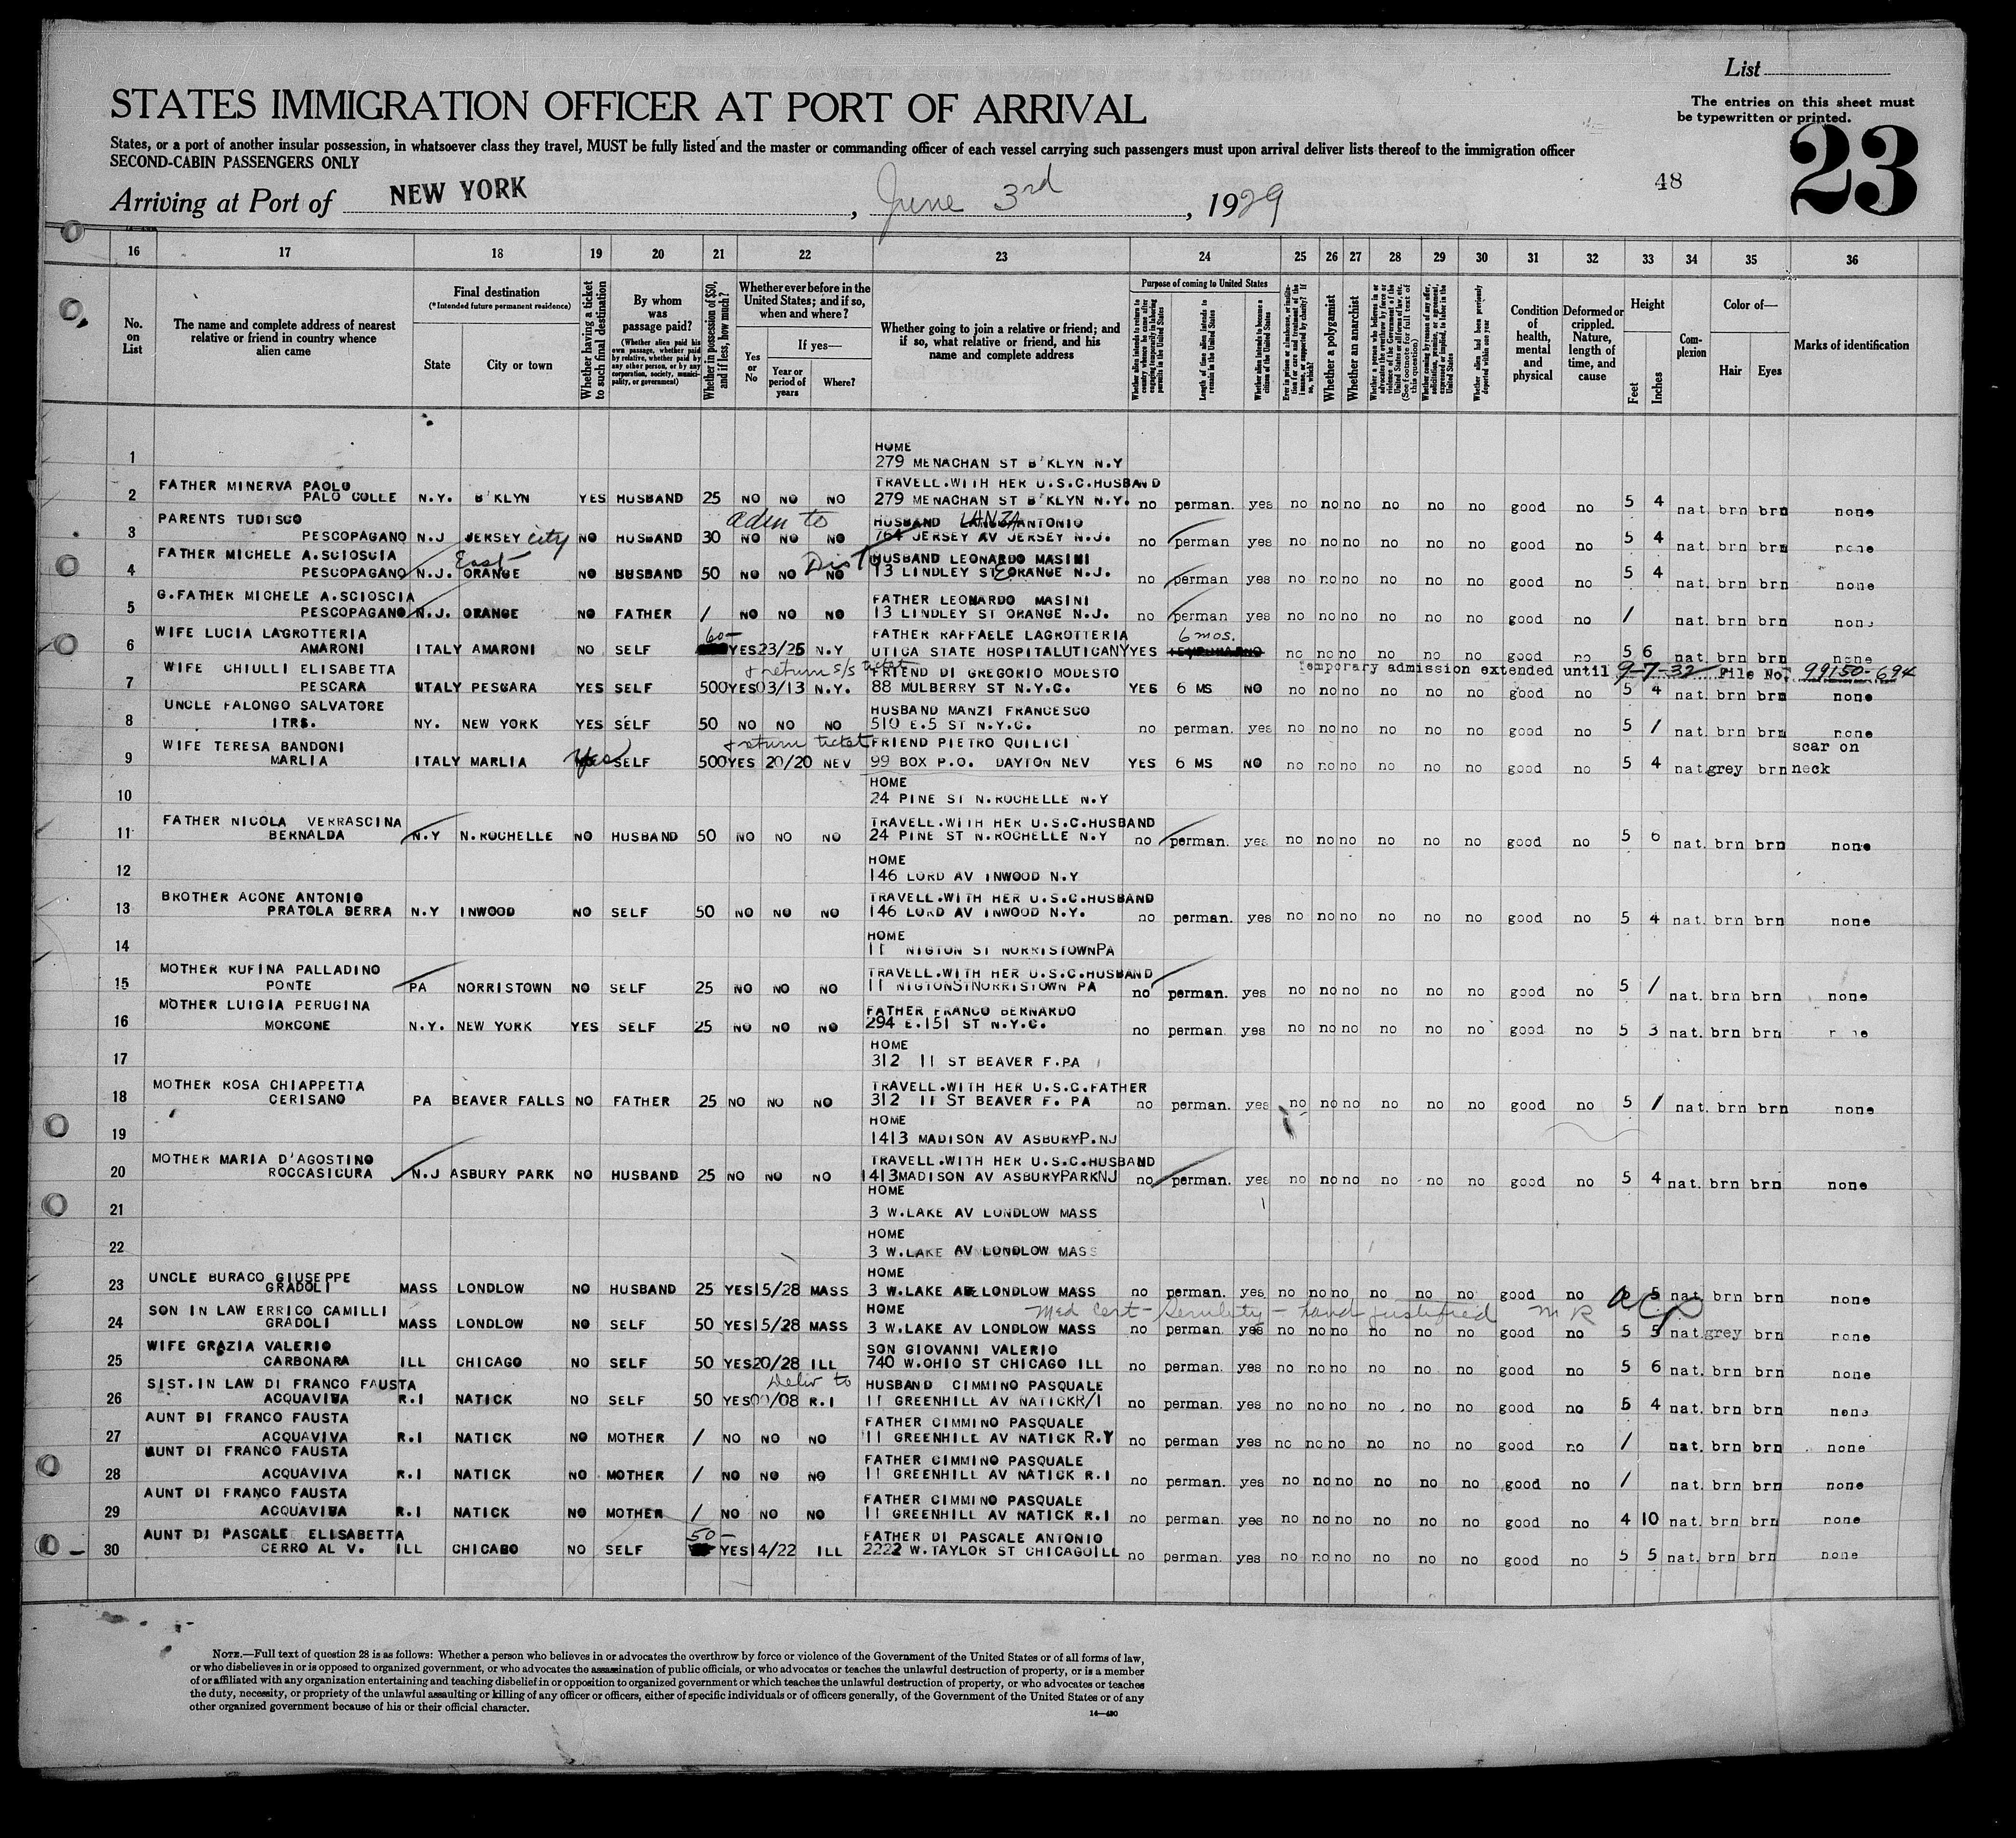 List
STATES IMMIGRATION OFFICER AT PORT OF ARRIVAL
The entries on this sheet must
be typewritten or printed.
States, or a port of another insular possession, in whatsoever class they travel, MUST be fully listed and the master or commanding officer of each vessel carrying such passengers must upon arrival deliver lists thereof to the immigration officer
SECOND-CABIN PASSENGERS ONLY
48
23
Arriving at Port of NEW YORK, June 3rd, 1929
16 17 18 19 20 21 22 23 24 25 26 27 28 29 30 31 32 33 34 35 36
No. on List
The name and complete address of nearest relative or friend in country whence alien came
Final destination (*Intended future permanent residence)
State
City or town
Whether having a ticket to such final destination
By whom was passage paid?
(Whether alien paid his own passage, whether paid by relative, whether paid by any other person, or by any corporation, society, municipality, or government)
Whether in possession of $50, and if less, how much?
Whether ever before in the United States; and if so, when and where?
Yes or No
If yes—
Year or period of years
Where?
Whether going to join a relative or friend; and if so, what relative or friend, and his name and complete address
Purpose of coming to United States
Length of time alien intends to remain in the United States
Whether alien intends to become a citizen of the United States
Whether a polygamist
Whether an anarchist
Whether alien had been previously deported within one year
Condition of health, mental and physical
Deformed or crippled. Nature, length of time, and cause
Height
Feet
Inches
Complexion
Color of—
Hair
Eyes
Marks of identification
HOME
1 279 MENACHAN ST B'KLYN N.Y
FATHER MINERVA PAOLO TRAVELL.WITH HER U.S.C.HUSBAND
2 PALO COLLE N.Y. B'KLYN YES HUSBAND 25 NO NO NO 279 MENACHAN ST B'KLYN N.Y. no perman. yes no no no no no no good no 5 4 nat. brn brn none
PARENTS TUDISCO HUSBAND LANZA ANTONIO
3 PESCOPAGANO N.J JERSEY city NO HUSBAND 30 NO NO NO 764 JERSEY AV JERSEY N.J. no perman yes no no no no no no good no 5 4 nat. brn brn none
FATHER MICHELE A.SCIOSCIA East HUSBAND LEONARDO MASINI
4 PESCOPAGANO N.J. ORANGE NO HUSBAND 50 NO NO NO 13 LINDLEY ST E ORANGE N.J. no perman yes no no no no no no good no 5 4 nat. brn brn none
G.FATHER MICHELE A.SCIOSCIA FATHER LEONARDO MASINI
5 PESCOPAGANO N.J. ORANGE NO FATHER / NO NO NO 13 LINDLEY ST ORANGE N.J. no perman yes no no no no no no good no / nat. brn brn none
WIFE LUCIA LAGROTTERIA 60- FATHER RAFFAELE LAGROTTERIA 6 mos.
6 AMARONI ITALY AMARONI NO SELF YES 23/25 N.Y UTICA STATE HOSPITALUTICANY YES no no no no no no good no 5 6 nat. brn brn none
WIFE CHIULLI ELISABETTA + return s/s ticket FRIEND DI GREGORIO MODESTO temporary admission extended until 9-7-32 File No. 99150-694
7 PESCARA ITALY PESCARA YES SELF 500 YES 03/13 N.Y. 88 MULBERRY ST N.Y.C. YES 6 MS NO no no no no no no good no 5 4 nat. brn brn none
UNCLE FALONGO SALVATORE HUSBAND MANZI FRANCESCO
8 ITRS. NY. NEW YORK YES SELF 50 NO NO NO 510 E.5 ST N.Y.C. no perman. yes no no no no no no good no 5 / nat. brn brn none
WIFE TERESA BANDONI + return ticket FRIEND PIETRO QUILICI scar on
9 MARLIA ITALY MARLIA Yes SELF 500 YES 20/20 NEV 99 BOX P.O. DAYTON NEV YES 6 MS NO no no no no no no good no 5 4 nat. grey brn neck
HOME
10 24 PINE ST N.ROCHELLE N.Y
FATHER NICOLA VERRASCINA TRAVELL.WITH HER U.S.C.HUSBAND
11 BERNALDA N.Y N.ROCHELLE NO HUSBAND 50 NO NO NO 24 PINE ST N.ROCHELLE N.Y no perman. yes no no no no no no good no 5 6 nat. brn brn none
HOME
12 146 LORD AV INWOOD N.Y
BROTHER ACONE ANTONIO TRAVELL.WITH HER U.S.C.HUSBAND
13 PRATOLA SERRA N.Y INWOOD NO SELF 50 NO NO NO 146 LORD AV INWOOD N.Y. no perman. yes no no no no no no good no 5 4 nat. brn brn none
HOME
14 11 NIGTON ST NORRISTOWNPA
MOTHER RUFINA PALLADINO TRAVELL.WITH HER U.S.C.HUSBAND
15 PONTE PA NORRISTOWN NO SELF 25 NO NO NO 11 NIGTONSTNORRISTOWN PA no perman. yes no no no no no no good no 5 / nat. brn brn none
MOTHER LUIGIA PERUGINA FATHER FRANCO BERNARDO
16 MORCONE N.Y. NEW YORK YES SELF 25 NO NO NO 294 E.151 ST N.Y.C. no perman. yes no no no no no no good no 5 3 nat. brn brn none
HOME
17 312 11 ST BEAVER F.PA
MOTHER ROSA CHIAPPETTA TRAVELL.WITH HER U.S.C.FATHER
18 CERISANO PA BEAVER FALLS NO FATHER 25 NO NO NO 312 11 ST BEAVER F. PA no perman. yes no no no no no no good no 5 / nat. brn brn none
HOME
19 1413 MADISON AV ASBURYP.NJ
MOTHER MARIA D'AGOSTINO TRAVELL.WITH HER U.S.C.HUSBAND
20 ROCCASICURA N.J ASBURY PARK NO HUSBAND 25 NO NO NO 1413MADISON AV ASBURYPARKNJ no perman. yes no no no no no no good no 5 4 nat. brn brn none
HOME
21 3 W.LAKE AV LONDLOW MASS
HOME
22 3 W.LAKE AV LONDLOW MASS
UNCLE BURACO GIUSEPPE HOME
23 GRADOLI MASS LONDLOW NO HUSBAND 25 YES 15/28 MASS 3 W.LAKE AV LONDLOW MASS no perman. yes no no no no no no good no 5 5 nat. brn brn none
SON IN LAW ERRICO CAMILLI HOME Med cert - Senility -
24 GRADOLI MASS LONDLOW NO SELF 50 YES 15/28 MASS 3 W.LAKE AV LONDLOW MASS no perman. yes no no no no no no good no 5 5 nat. grey brn none
WIFE GRAZIA VALERIO SON GIOVANNI VALERIO
25 CARBONARA ILL CHICAGO NO SELF 50 YES 20/28 ILL 740 W.OHIO ST CHICAGO ILL no perman. yes no no no no no no good no 5 6 nat. brn brn none
SIST.IN LAW DI FRANCO FAUSTA Deliv to HUSBAND CIMMINO PASQUALE
26 ACQUAVIVA R.I NATICK NO SELF 50 YES /08 R.I 11 GREENHILL AV NATICKR/I no perman. yes no no no no no no good no 5 4 nat. brn brn none
AUNT DI FRANCO FAUSTA FATHER CIMMINO PASQUALE
27 ACQUAVIVA R.I NATICK NO MOTHER / NO NO NO 11 GREENHILL AV NATICK R.Y no perman yes no no no no no no good no / nat. brn brn none
AUNT DI FRANCO FAUSTA FATHER CIMMINO PASQUALE
28 ACQUAVIVA R.I NATICK NO MOTHER / NO NO NO 11 GREENHILL AV NATICK R.I no perman. yes no no no no no no good no / nat. brn brn none
AUNT DI FRANCO FAUSTA FATHER CIMMINO PASQUALE
29 ACQUAVIVA R.I NATICK NO MOTHER / NO NO NO 11 GREENHILL AV NATICK R.I no perman. yes no no no no no no good no 4 10 nat. brn brn none
AUNT DI PASCALE ELISABETTA 50- FATHER DI PASCALE ANTONIO
30 CERRO AL V. ILL CHICAGO NO SELF YES 14/22 ILL 2222 W.TAYLOR ST CHICAGOILL no perman. yes no no no no no no good no 5 5 nat. brn brn none
NOTE.—Full text of question 28 is as follows: Whether a person who believes in or advocates the overthrow by force or violence of the Government of the United States or of all forms of law,
or who disbelieves in or is opposed to organized government, or who advocates the assassination of public officials, or who advocates or teaches the unlawful destruction of property, or is a member
of or affiliated with any organization entertaining and teaching disbelief in or opposition to organized government or which teaches the unlawful destruction of property, or who advocates or teaches
the duty, necessity, or propriety of the unlawful assaulting or killing of any officer or officers, either of specific individuals or of officers generally, of the Government of the United States or of any
other organized government because of his or their official character.
14—430